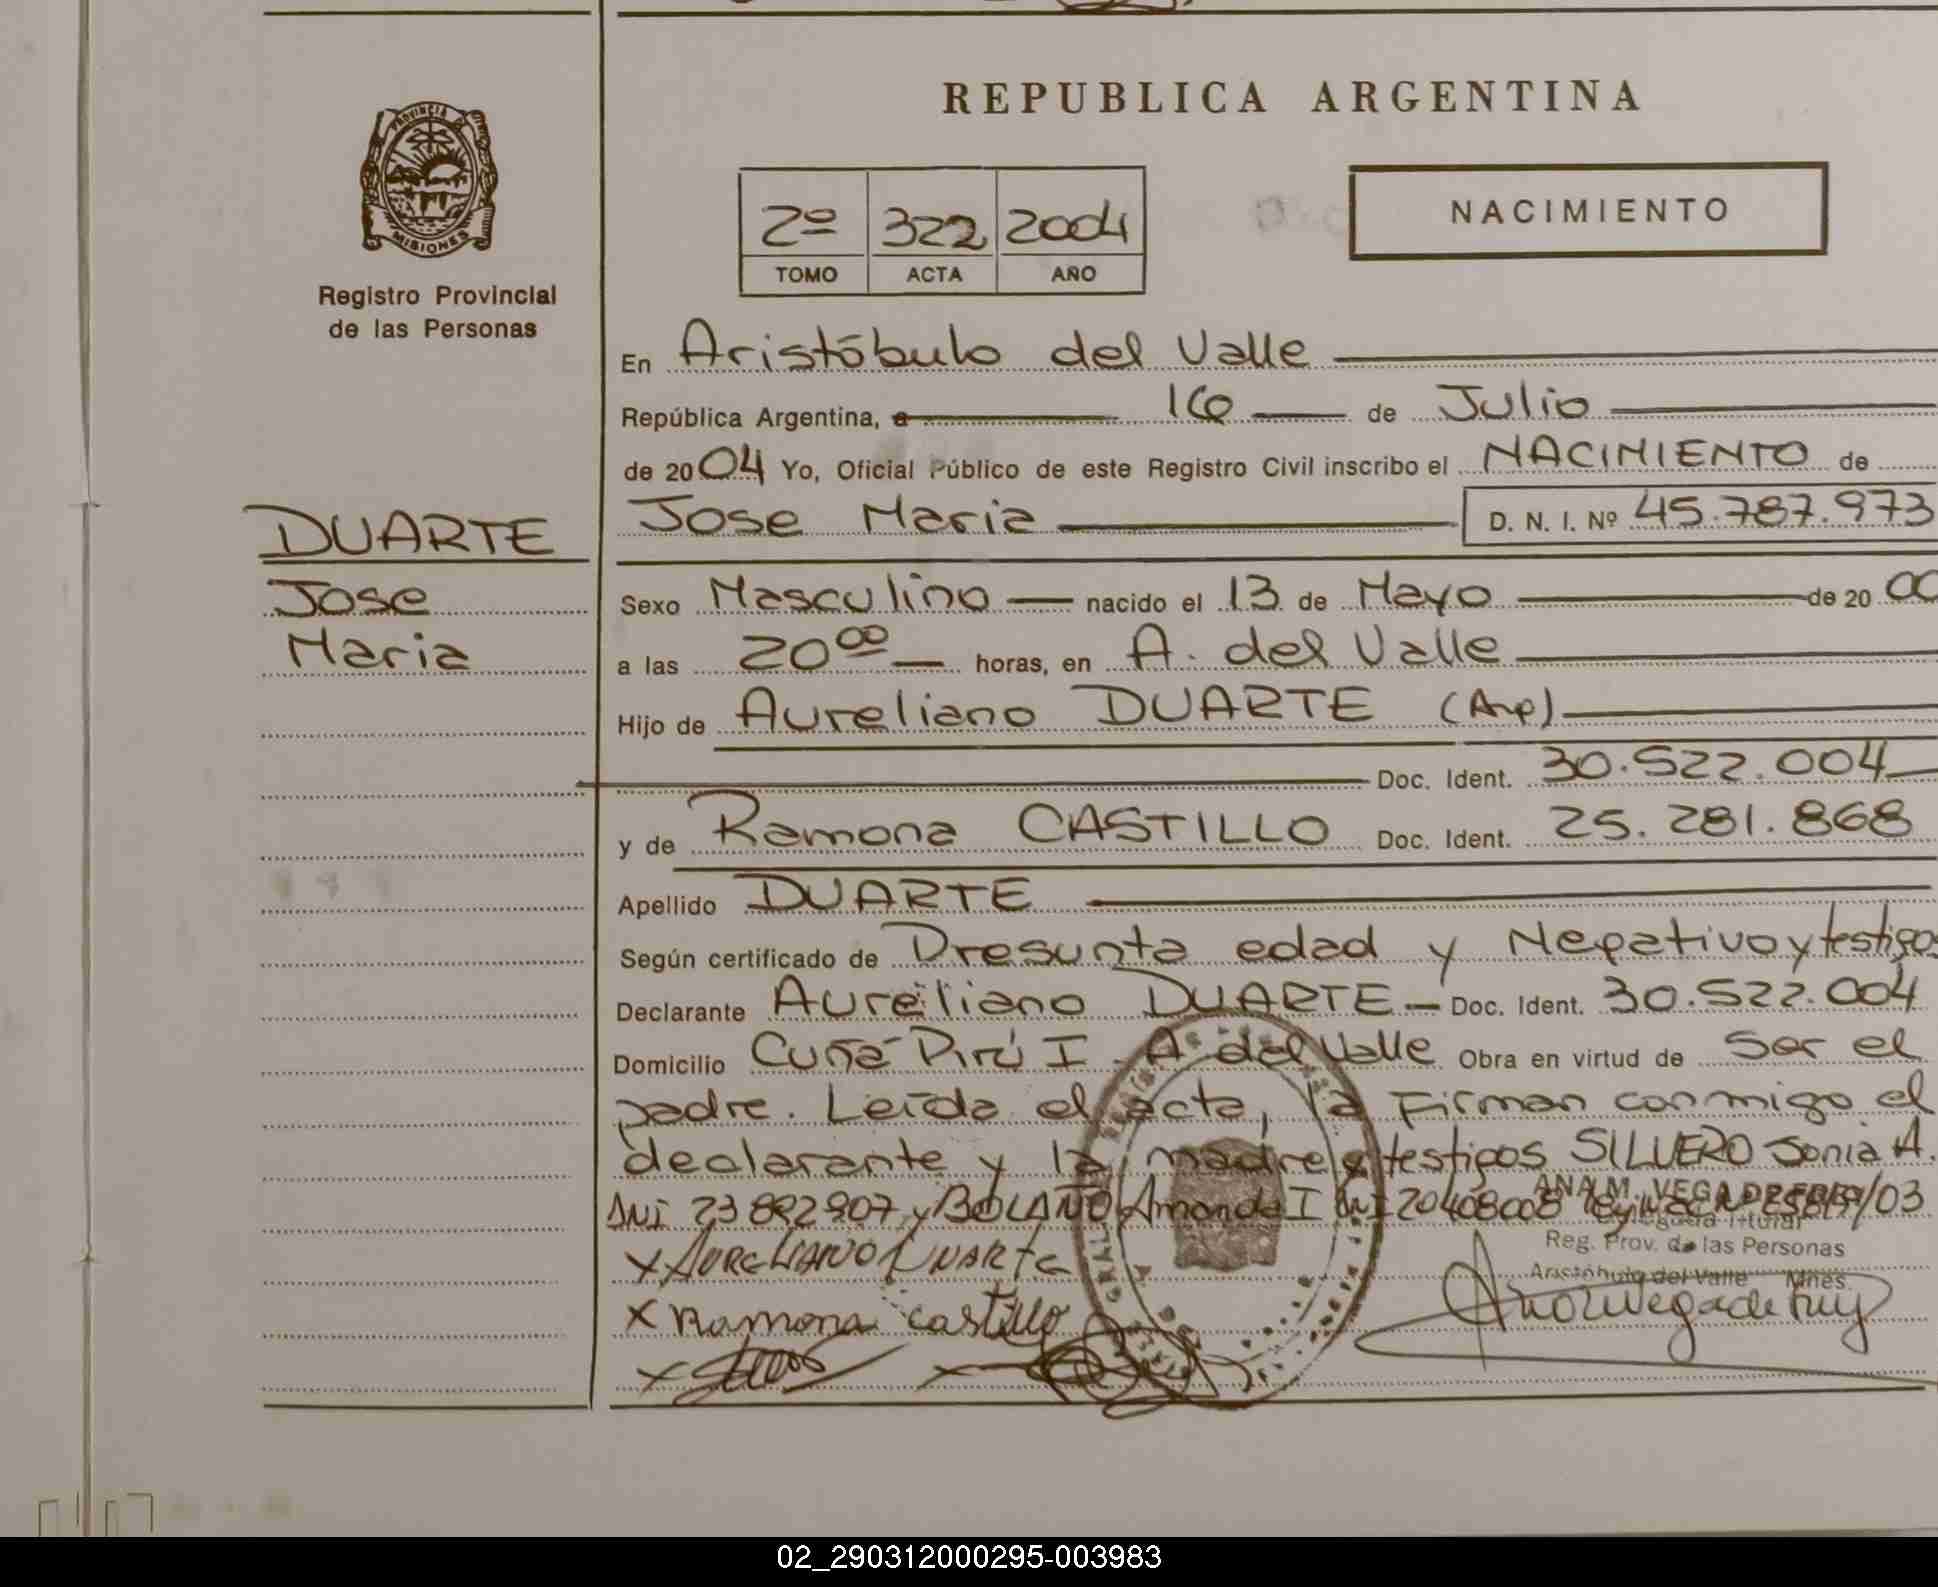 REPUBLICA ARGENTINA
PROVINCIA DE
MISIONES
Registro Provincial
de las Personas
2º 322 2004
TOMO ACTA AÑO
NACIMIENTO
En Aristóbulo del Valle
República Argentina, a 16 de Julio
de 2004 Yo, Oficial Público de este Registro Civil inscribo el NACIMIENTO de
DUARTE
Jose
Maria
Jose Maria D. N. I. Nº 45.787.973
Sexo Masculino nacido el 13 de Mayo de 20 00
a las 20 00 horas, en A. del Valle
Hijo de Aureliano DUARTE (Arg)
Doc. Ident. 30.522.004
y de Ramona CASTILLO Doc. Ident. 25.281.868
Apellido DUARTE
Según certificado de Presunta edad y Negativo y testigos
Declarante Aureliano DUARTE Doc. Ident. 30.522.004
Domicilio Cuña Pirú I A. del Valle Obra en virtud de Ser el
padre. Leída el acta, la Firman conmigo el
declarante y la madre y testigos SILVERO Sonia A.
DNI 23892907 y BOLAÑO Amanda I DNI 20408008 Ley Nac Nº 25819/03
ANA M. VEGA DE
Delegada Titular
Reg. Prov. de las Personas
Aristóbulo del Valle Mnes.
x AURELIANO DUARTE
x Ramona castillo
02_290312000295-003983